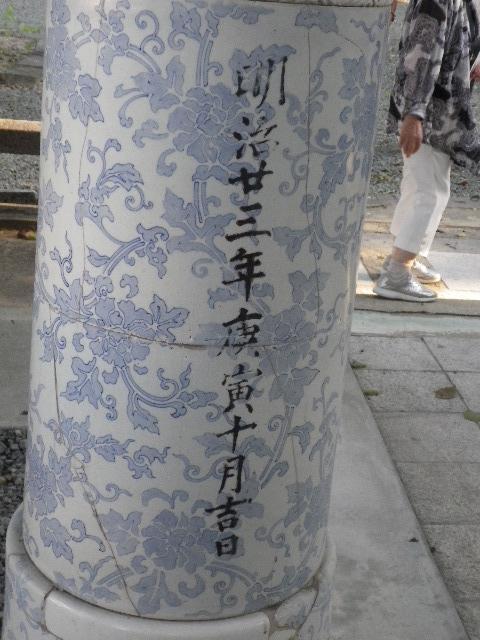 明治廿三年庚寅十月吉日